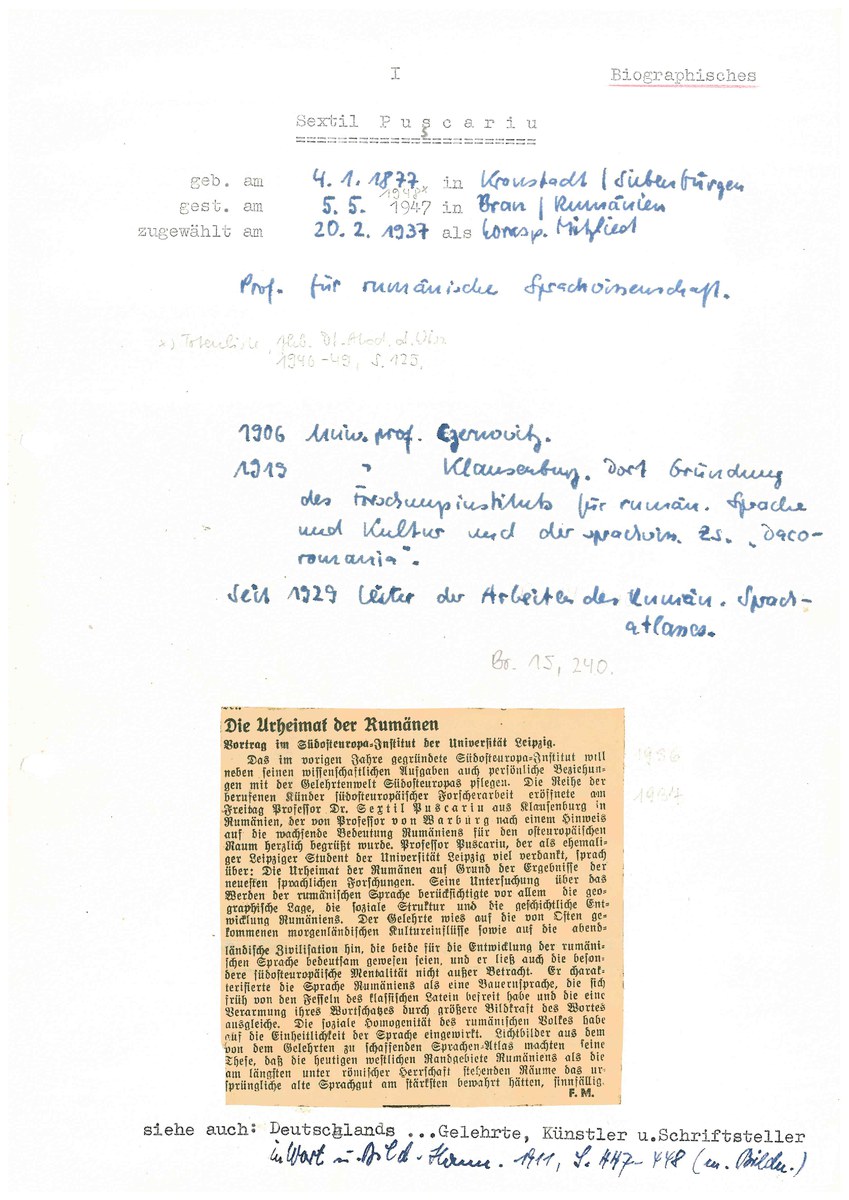 I
Biographisches
Sextil Pușcariu
geb. am 4. 1. 1877 in Kronstadt / Siebenbürgen
1948x
gest. am 5. 5. 1947 in Bran / Rumänien
zugewählt am 20. 2. 1937 als korresp. Mitglied
Prof. für rumänische Sprachwissenschaft.
x) Totenliste, Jhb. Dt. Akad. d. Wiss.
1946-49, S. 125.
1906 Univ. prof. Czernovitz.
1919 " Klausenburg. Dort Gründung
des Forschungsinstituts für rumän. Sprache
und Kultur und der sprachwiss. Zs. „Daco-
romania“.
Seit 1929 Leiter der Arbeiten des Rumän. Sprach-
atlasses.
Br. 15, 240.
Die Urheimat der Rumänen
Vortrag im Südosteuropa-Institut der Universität Leipzig.
Das im vorigen Jahre gegründete Südosteuropa-Institut will
neben seinen wissenschaftlichen Aufgaben auch persönliche Beziehun-
gen mit der Gelehrtenwelt Südosteuropas pflegen. Die Reihe der
berufenen Künder südosteuropäischer Forscherarbeit eröffnete am
Freitag Professor Dr. Sextil Puscariu aus Klausenburg in
Rumänien, der von Professor von Warburg nach einem Hinweis
auf die wachsende Bedeutung Rumäniens für den osteuropäischen
Raum herzlich begrüßt wurde. Professor Puscariu, der als ehemali-
ger Leipziger Student der Universität Leipzig viel verdankt, sprach
über: Die Urheimat der Rumänen auf Grund der Ergebnisse der
neuesten sprachlichen Forschungen. Seine Untersuchung über das
Werden der rumänischen Sprache berücksichtigte vor allem die geo-
graphische Lage, die soziale Struktur und die geschichtliche Ent-
wicklung Rumäniens. Der Gelehrte wies auf die von Osten ge-
kommenen morgenländischen Kultureinflüsse sowie auf die abend-
ländische Zivilisation hin, die beide für die Entwicklung der rumäni-
schen Sprache bedeutsam gewesen seien, und er ließ auch die beson-
dere südosteuropäische Mentalität nicht außer Betracht. Er charak-
terisierte die Sprache Rumäniens als eine Bauernsprache, die sich
früh von den Fesseln des klassischen Latein befreit habe und die eine
Verarmung ihres Wortschatzes durch größere Bildkraft des Wortes
ausgleiche. Die soziale Homogenität des rumänischen Volkes habe
auf die Einheitlichkeit der Sprache eingewirkt. Lichtbilder aus dem
von dem Gelehrten zu schaffenden Sprachen-Atlas machten seine
These, daß die heutigen westlichen Randgebiete Rumäniens als die
am längsten unter römischer Herrschaft stehenden Räume das ur-
sprüngliche alte Sprachgut am stärksten bewahrt hätten, sinnfällig.
F. M.
1936
1937
siehe auch: Deutschlands ...Gelehrte, Künstler u.Schriftsteller
in Wort u. Bild. Hann. 1911, S. 447-448 (m. Bildn.)